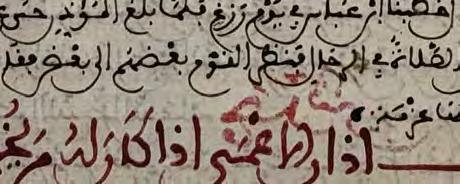 خطبنا ابن عباس في يوم رزغ فلما بلغ المؤذن حي
الصلاة في الرحال فنظر القوم بعضهم الى بعض فقل
عزمة
اذان الاعمى اذا كان له من يخ